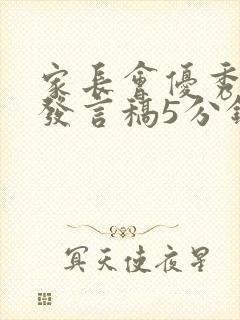 家長會優秀
發言稿5分鐘
冥天使夜星